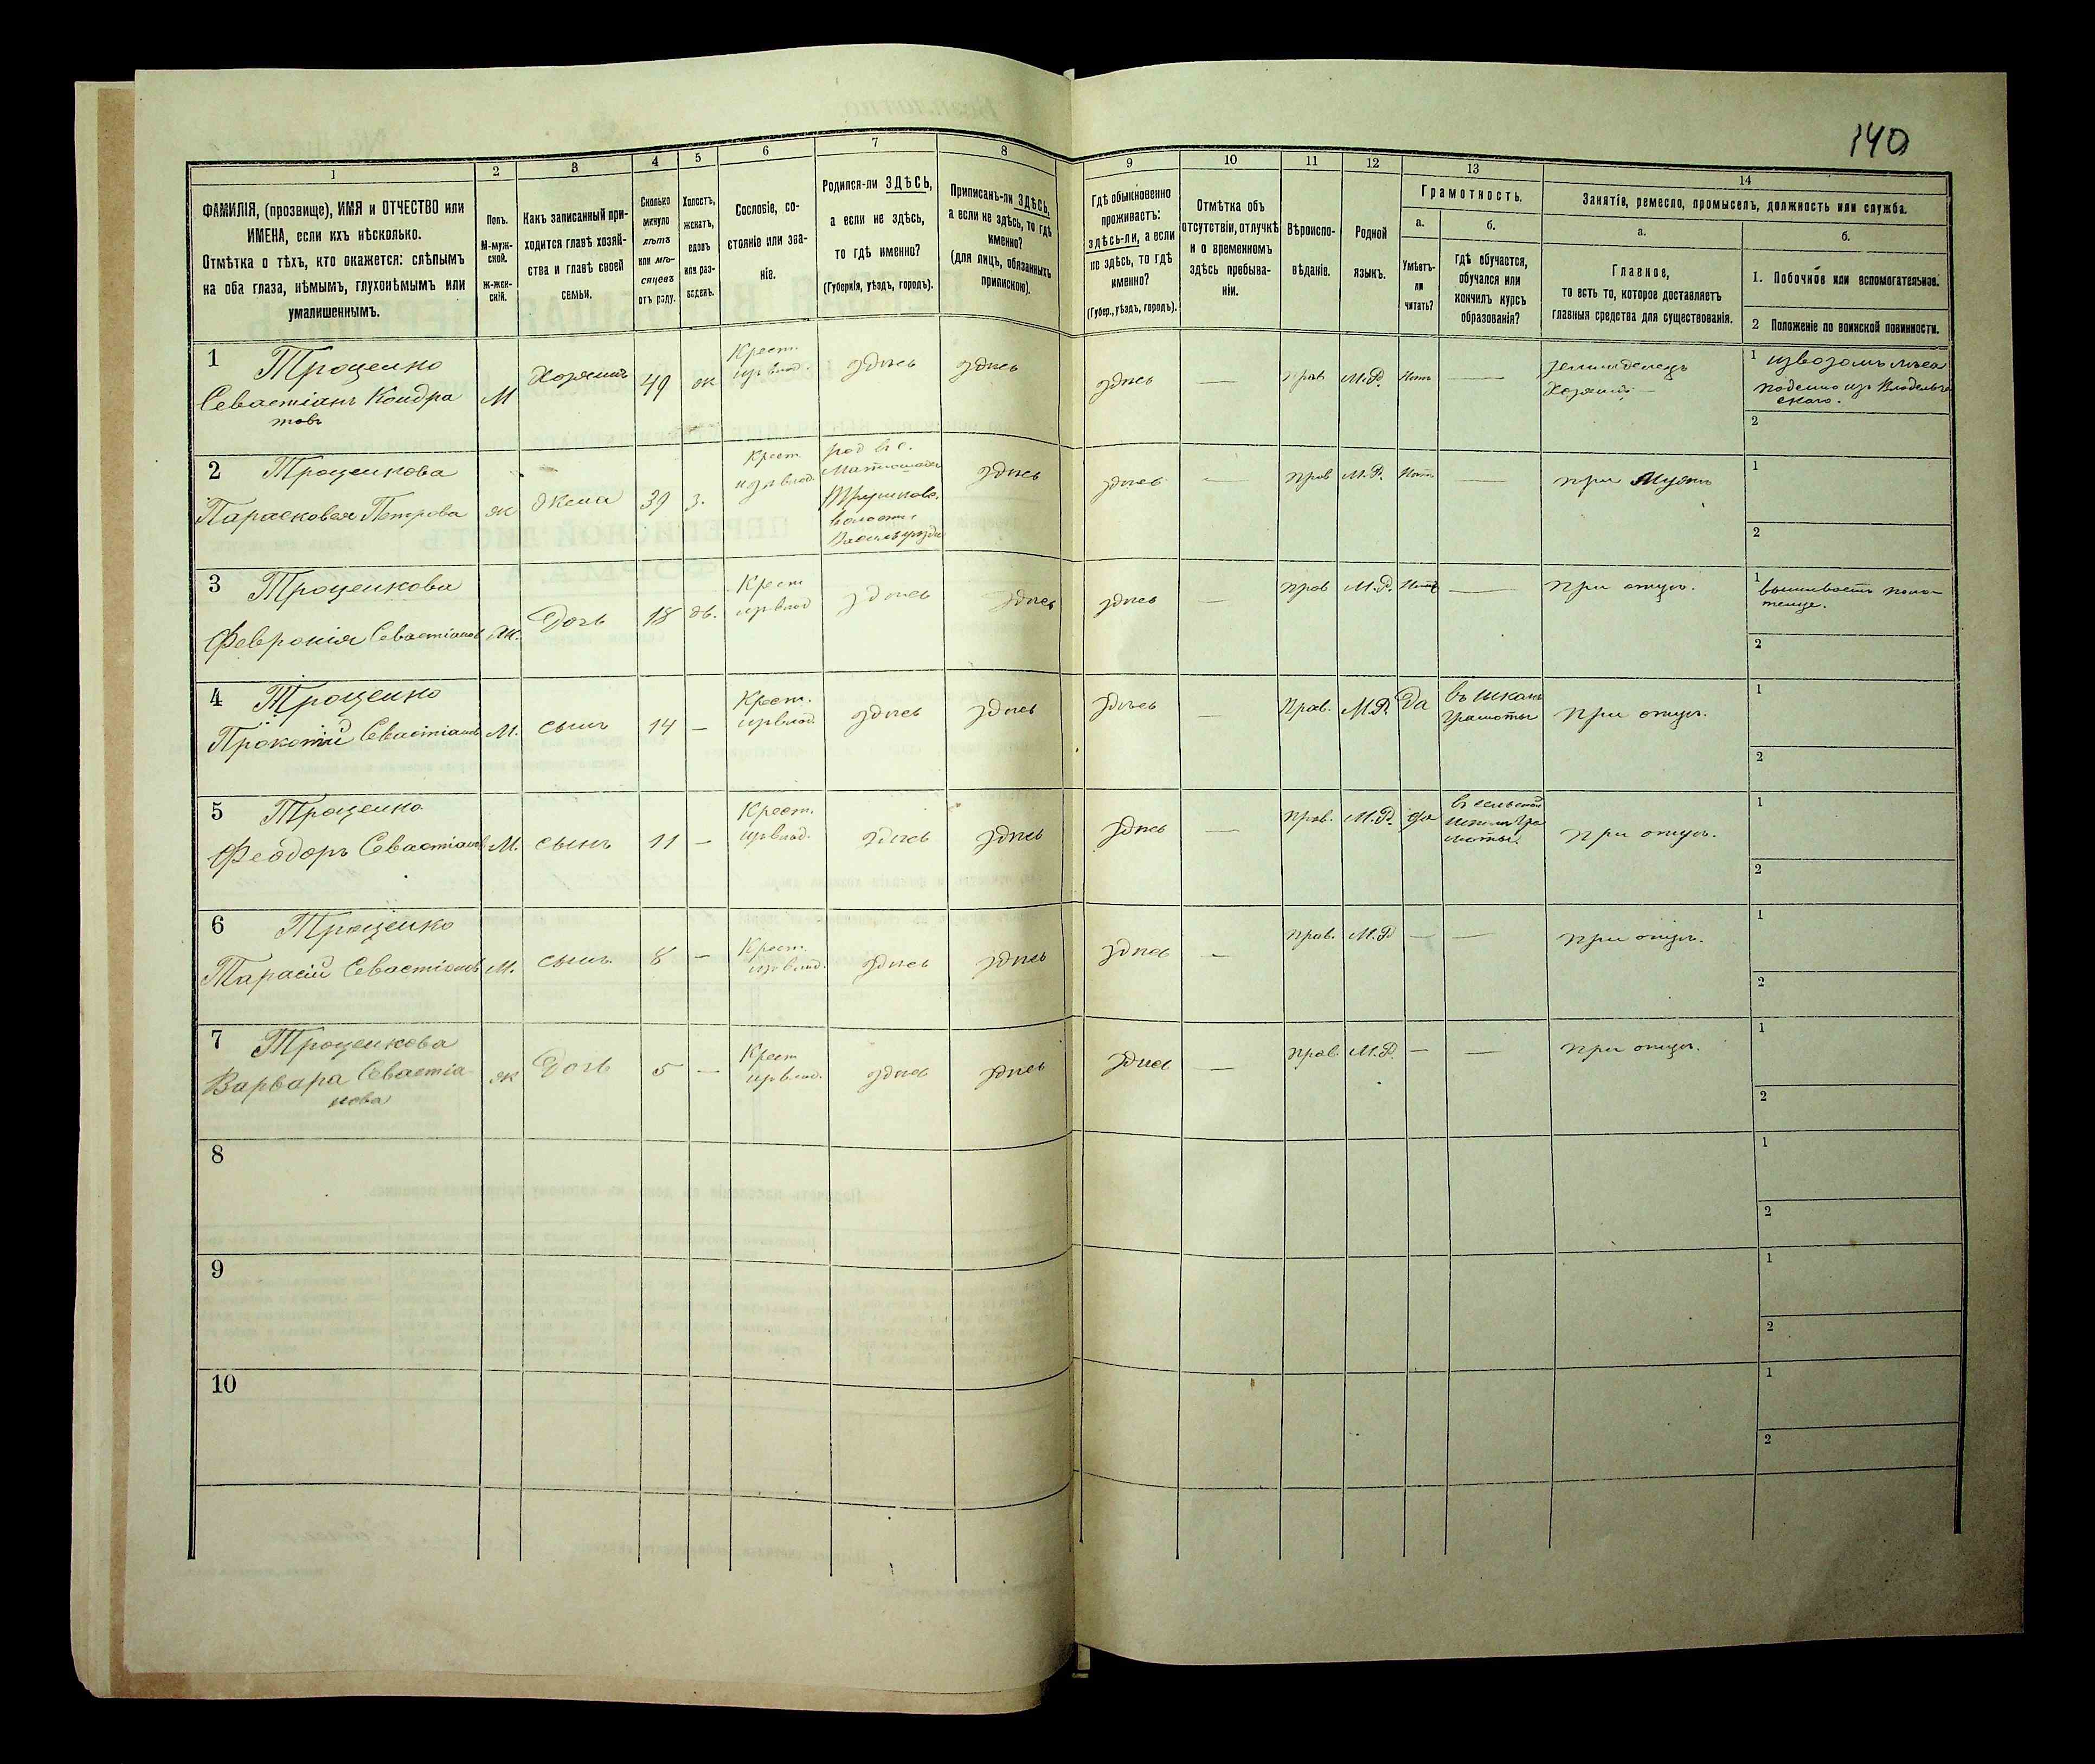 140
1
2
3
4
5
6
7
8
9
10
11
12
13
14
ФАМИЛІЯ, (прозвище), ИМЯ и ОТЧЕСТВО или
ИМЕНА, если ихъ нѣсколько.
Отмѣтка о тѣхъ, кто окажется: слѣпымъ
на оба глаза, нѣмымъ, глухонѣмымъ или
умалишеннымъ.
Полъ.
М-муж-
ской.
Ж-жен-
скій.
Какъ записанный при-
ходится главѣ хозяй-
ства и главѣ своей
семьи.
Сколько
минуло
лѣтъ
или мѣ-
сяцевъ
отъ роду.
Холостъ,
женатъ,
вдовъ
или раз-
веденъ.
Сословіе, со-
стояніе или зва-
ніе.
Родился-ли ЗДѢСЬ,
а если не здѣсь,
то гдѣ именно?
(Губернія, уѣздъ, городъ).
Приписанъ-ли ЗДѢСЬ,
а если не здѣсь, то гдѣ
именно?
(для лицъ, обязанныхъ
припискою).
Гдѣ обыкновенно
проживаетъ:
здѣсь-ли, а если
не здѣсь, то гдѣ
именно?
(Губер., уѣздъ, городъ).
Отмѣтка объ
отсутствіи, отлучкѣ
и о временномъ
здѣсь пребыва-
ніи.
Вѣроиспо-
вѣданіе.
Родной
языкъ.
Грамотность.
а.
Умѣетъ-
ли
читать?
б.
гдѣ обучается,
обучался или
кончилъ курсъ
образованія?
Занятіе, ремесло, промыселъ, должность или служба.
а.
Главное,
то есть то, которое доставляетъ
главныя средства для существованія.
б.
1. Побочное или вспомогательное.
2 Положеніе по воинской повинности.
1 Троценко
Севастіанъ Кондра
товъ
М
Хозяинъ
49
ж
Крест.
изъ влад.
здѣсь
здѣсь
здѣсь
—
Прав
М.Р.
Нѣтъ
—
земледѣлецъ
Хозяинъ
1 извозомъ лѣса
2
2 Троценкова
Парасковея Петрова
ж
Жена
39
з.
Крест
изъ влад.
род въ с.
волости
здѣсь
здѣсь
-
Прав
М.Р.
Нѣтъ
—
при Мужѣ
1
2
3 Троценкова
Февронія Севастіанов
ж.
Дочь
18
дѣв.
Крест
изъ влад
здѣсь
здѣсь
здѣсь
—
Прав
М.Р.
Нѣтъ
—
при отцѣ.
1 вышиваетъ поло-
тенце.
2
4 Троценко
Прокопій Севастіанов
М.
сынъ
14
—
Крест.
изъ влад.
здѣсь
здѣсь
здѣсь
—
Прав.
М.Р.
Да
въ школѣ
грамоты
при отцѣ.
1
2
5 Троценко
Феодоръ Севастіанов
М.
сынъ
11
—
Крест.
изъ влад.
здѣсь
здѣсь
здѣсь
—
Прав.
М.Р.
да
въ сельской
школѣ гра
моты.
при отцѣ.
1
2
6 Троценко
Тарасій Севастіановъ
М.
сынъ
8
—
Крест.
изъ влад.
здѣсь
здѣсь
здѣсь
—
Прав.
М.Р
—
—
при отцѣ.
1
2
7 Троценкова
Варвара Севастіа
нова
ж
Дочь
5
—
Крест
изъ влад.
здѣсь
здѣсь
здѣсь
—
Прав.
М.Р.
—
—
при отцѣ.
1
2
8
1
2
9
1
2
10
1
2